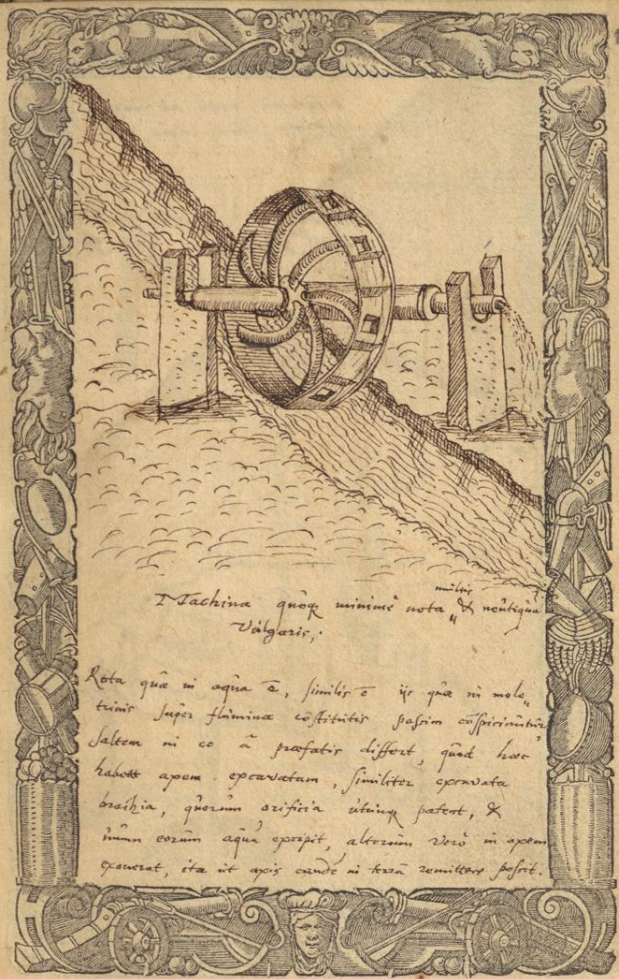 multis
Machina quoq; minimè nota „ & neutiquā
Vulgaris,.
Rota quæ in aqua ē, similis ē ijs quæ in mole„
trinis super flumina cōstitutis passim cōspiciuntur
saltem in eo à præfatis differt, quod hæc
habett axem excavatam, similiter excavata
brachia, quorum orificia utrinq patent, &
unum eorum aquā excipit, alterum verò in axem
exonerat, ita ut axis eandē in terrā remittere possit.